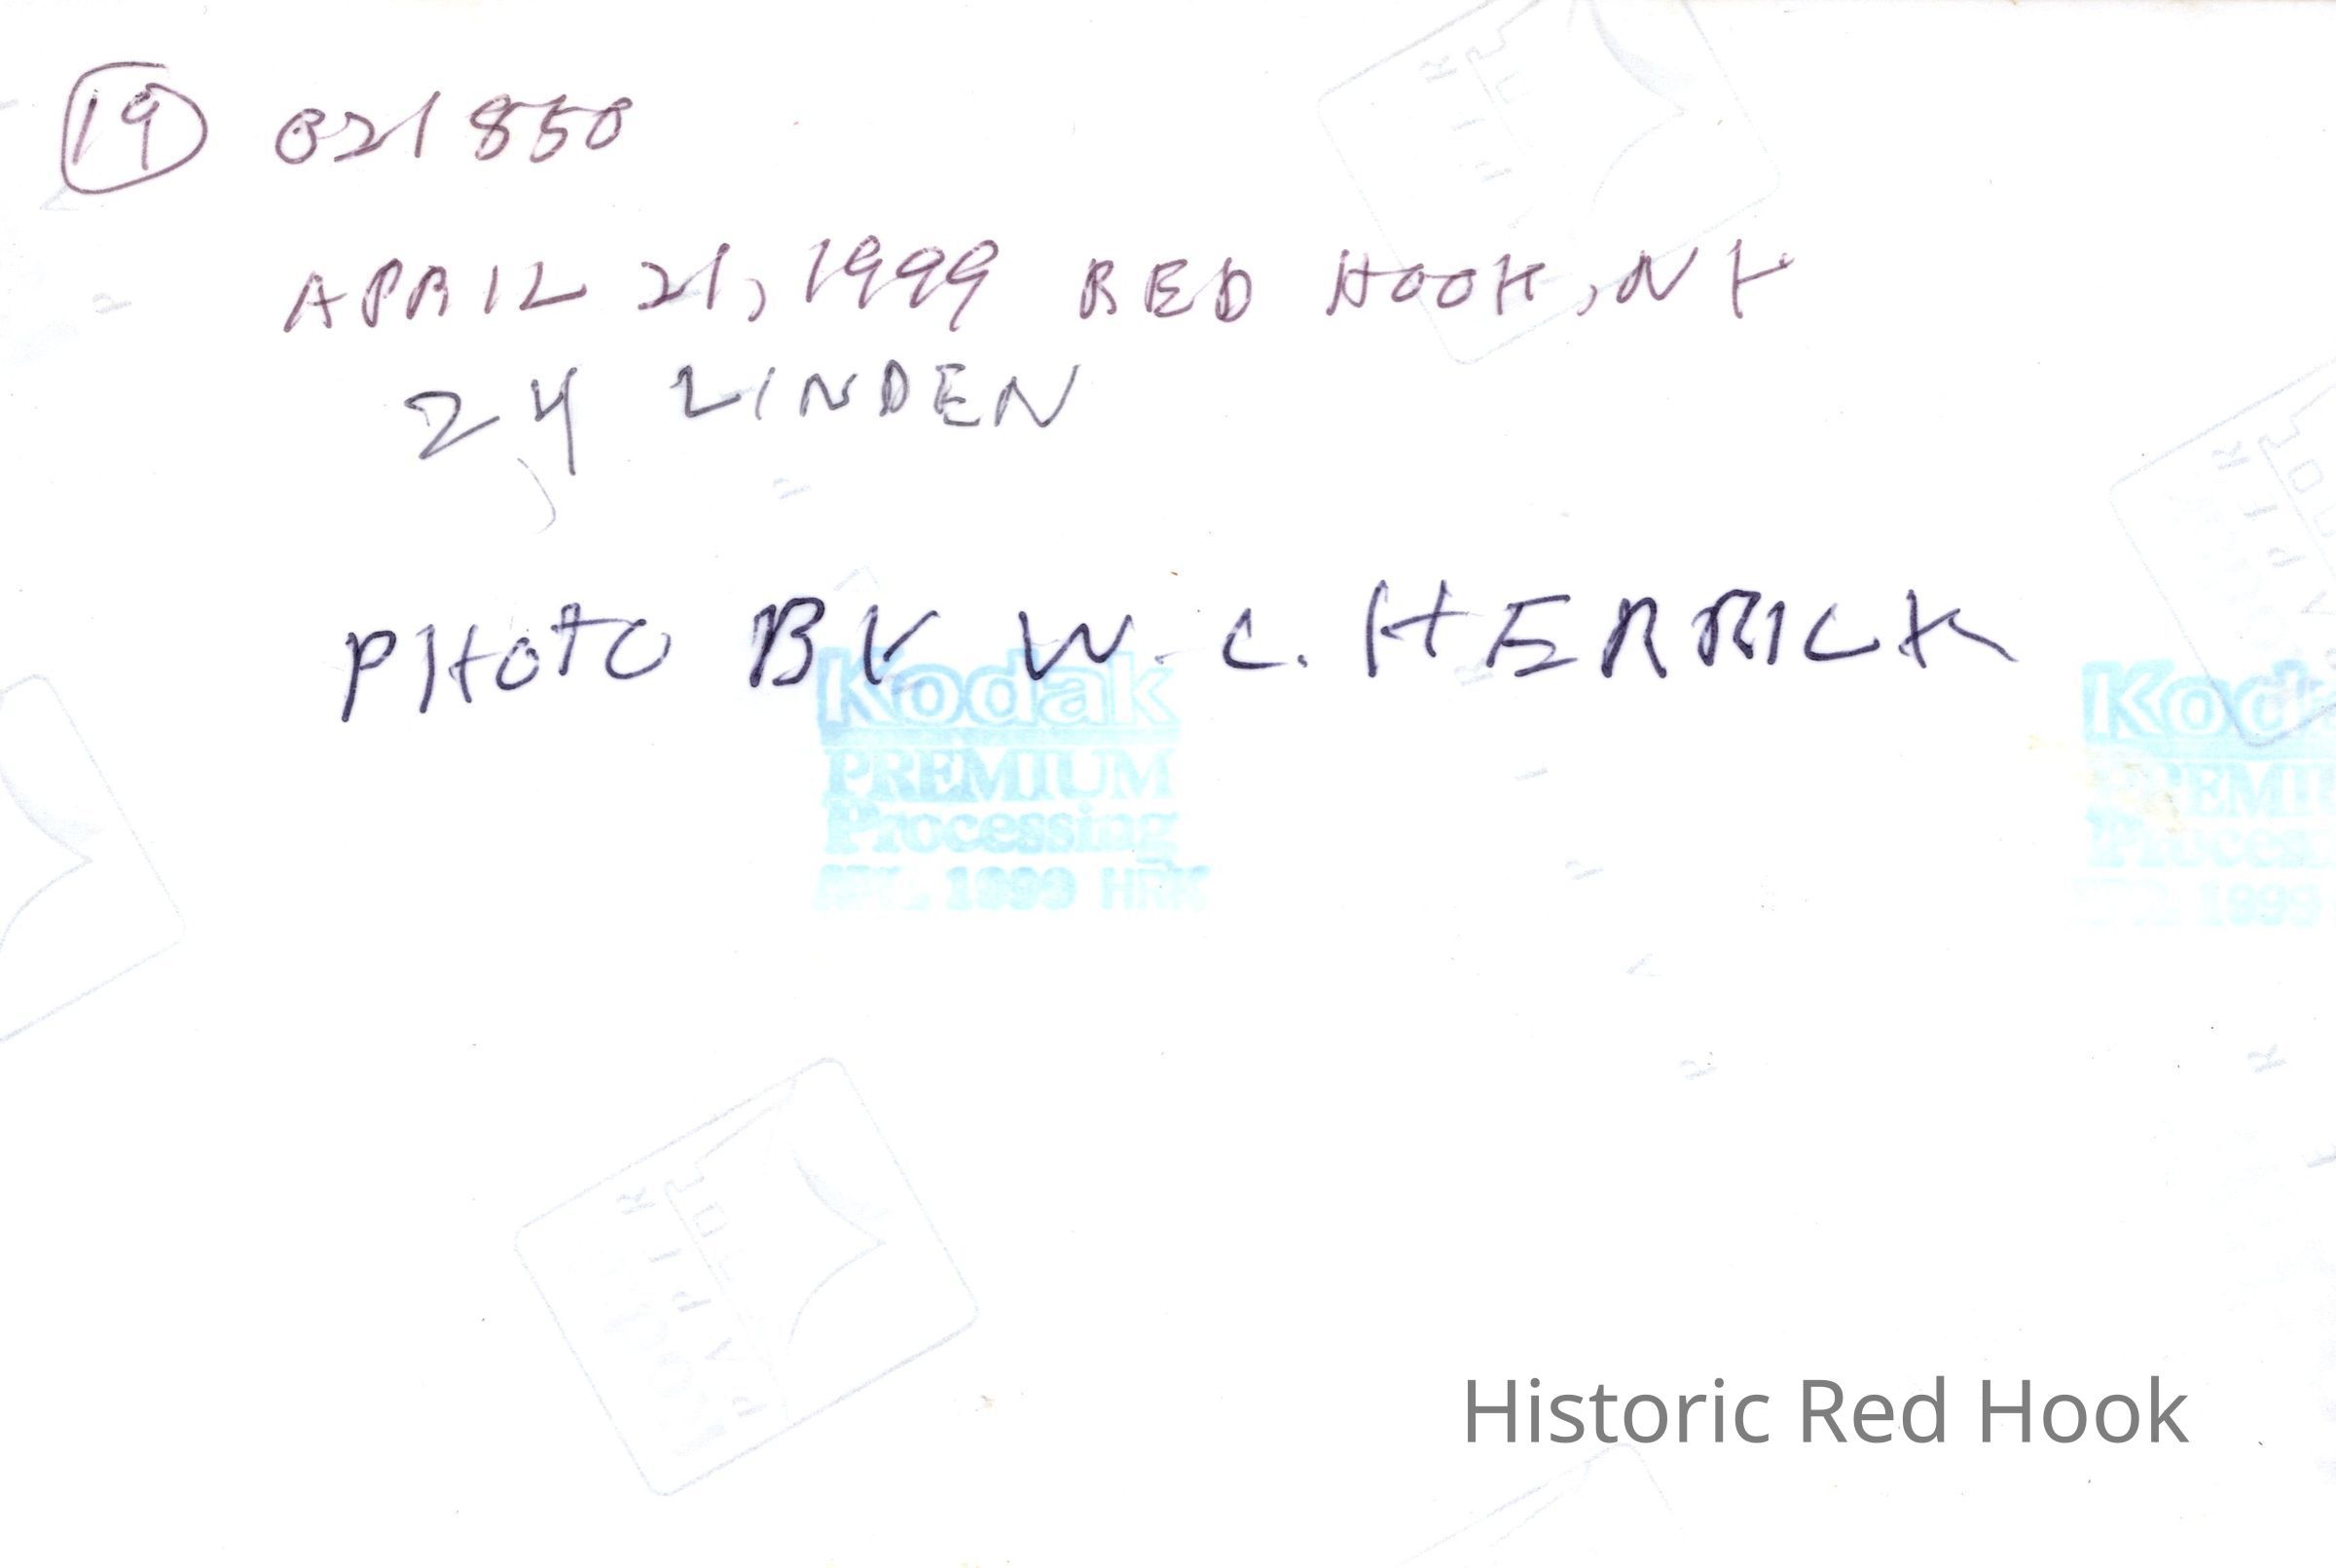 19 021850
APRIL 21, 1999 RED HOOK, NY
24 LINDEN
PHOTO BY W. C. HERRICK
Kodak
PREMIUM
Processing
1999 HRK
Kod
PREMIU
Proces
1999
Historic Red Hook